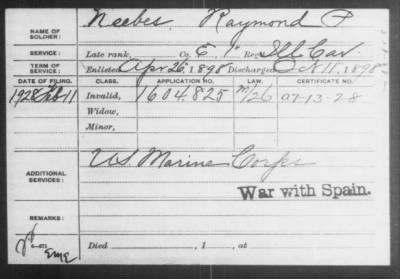 NAME OF SOLDIER: Neebes, Raymond P
SERVICE: Late rank, Co. E, 1" Reg't Ill Cav.
TERM OF SERVICE: Enlisted Apr 26, 1898 Discharged Oct 11, 1898
DATE OF FILING. CLASS. APPLICATION NO. LAW. CERTIFICATE NO.
1928 Feb 11 Invalid, 1604825 M/26 A7-13-28
Widow,
Minor,
ADDITIONAL SERVICES: U.S. Marine Corps
War with Spain.
REMARKS:
Died , 1 , at